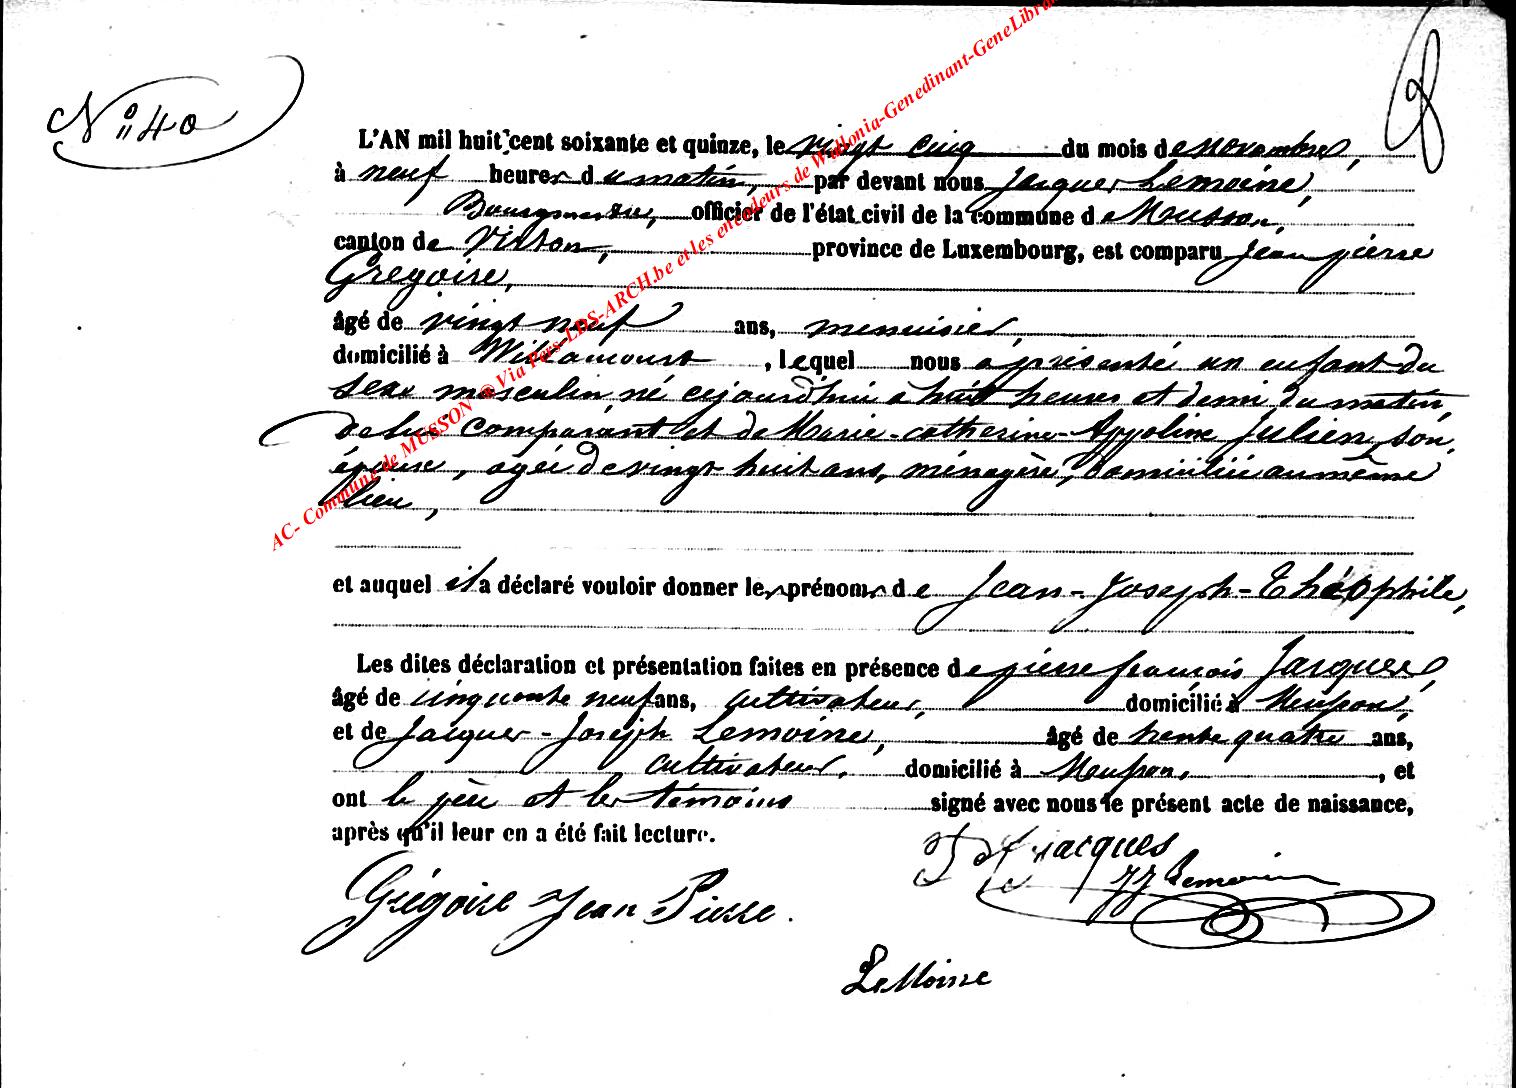 N° 40
L'AN mil huit cent soixante et quinze, le vingt cinq du mois de novembre,
à neuf heures du matin, par devant nous Jacques Lemoine,
Bourgmestre, officier de l'état civil de la commune de Musson,
canton de Virton, province de Luxembourg, est comparu Jean pierre
Gregoire,
âgé de vingt neuf ans, menuisier,
domicilié à Willancourt, lequel nous a présenté un enfant du
sexe masculin, né cejourd'hui à huit heures et demi du matin,
de lui comparant et de Marie-catherine-Appoline Julien, son
épouse, agée de vingt huit ans, ménagère, domiciliée au même
lieu,
et auquel il a déclaré vouloir donner les prénoms de Jean-Joseph-Théophile,
Les dites déclaration et présentation faites en présence de pierre françois Jacques,
âgé de cinquante neuf ans, cultivateur, domicilié à Musson,
et de Jacques-Joseph Lemoine, âgé de trente quatre ans,
cultivateur, domicilié à Musson, et
ont le père et les témoins signé avec nous le présent acte de naissance,
après qu'il leur en a été fait lecture.
jacques
JJ Lemoine
Grégoire Jean Pierre.
LeMoine
AC- Commune de MUSSON @ Via Pers-LDS-ARCH.be et les encodeurs de Wallonia-Genedinant-GeneLibra